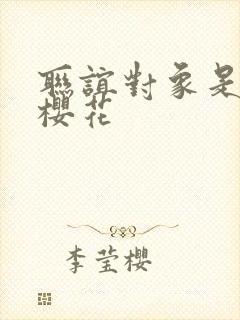 聯誼對象是
櫻花
李莹櫻